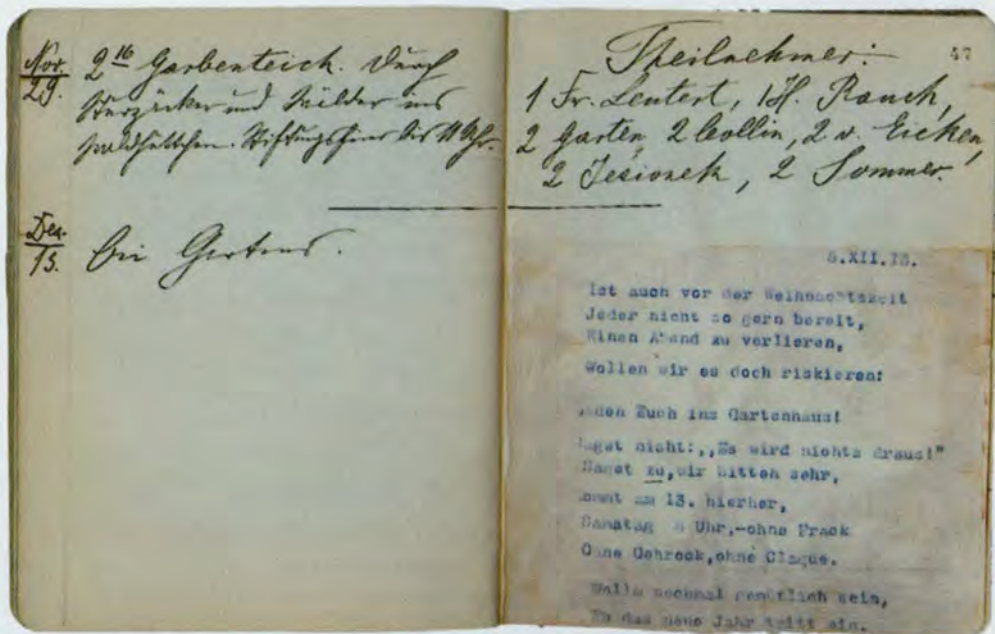 Nov.
29.
2 16 Garbenteich. Durch
Sturzäcker und Wälder ins
Waldhüttchen. Stiftungsfeier bis 11 Uhr.
Dez.
13.
Bei Gartens.
47
Theilnehmer:
1 Fr. Leutert, 1 H. Rauch,
2 Garten, 2 Collin, 2 v. Eicken,
2 Jesionek, 2 Sommer.
5.XII.13.
Ist auch vor der Weihnachtszeit
Jeder nicht so gern bereit,
Einen Abend zu verlieren,
Wollen wir es doch riskieren!
Euch ins Gartenhaus!
Saget nicht: „Es wird nichts draus!"
Saget zu, wir bitten sehr,
Kommt am 13. hierher,
Samstag 8 Uhr,-ohne Frack
Ohne Gehrock, ohne Claque.
Wolln nochmal gemütlich sein,
Eh das neue Jahr tritt ein.